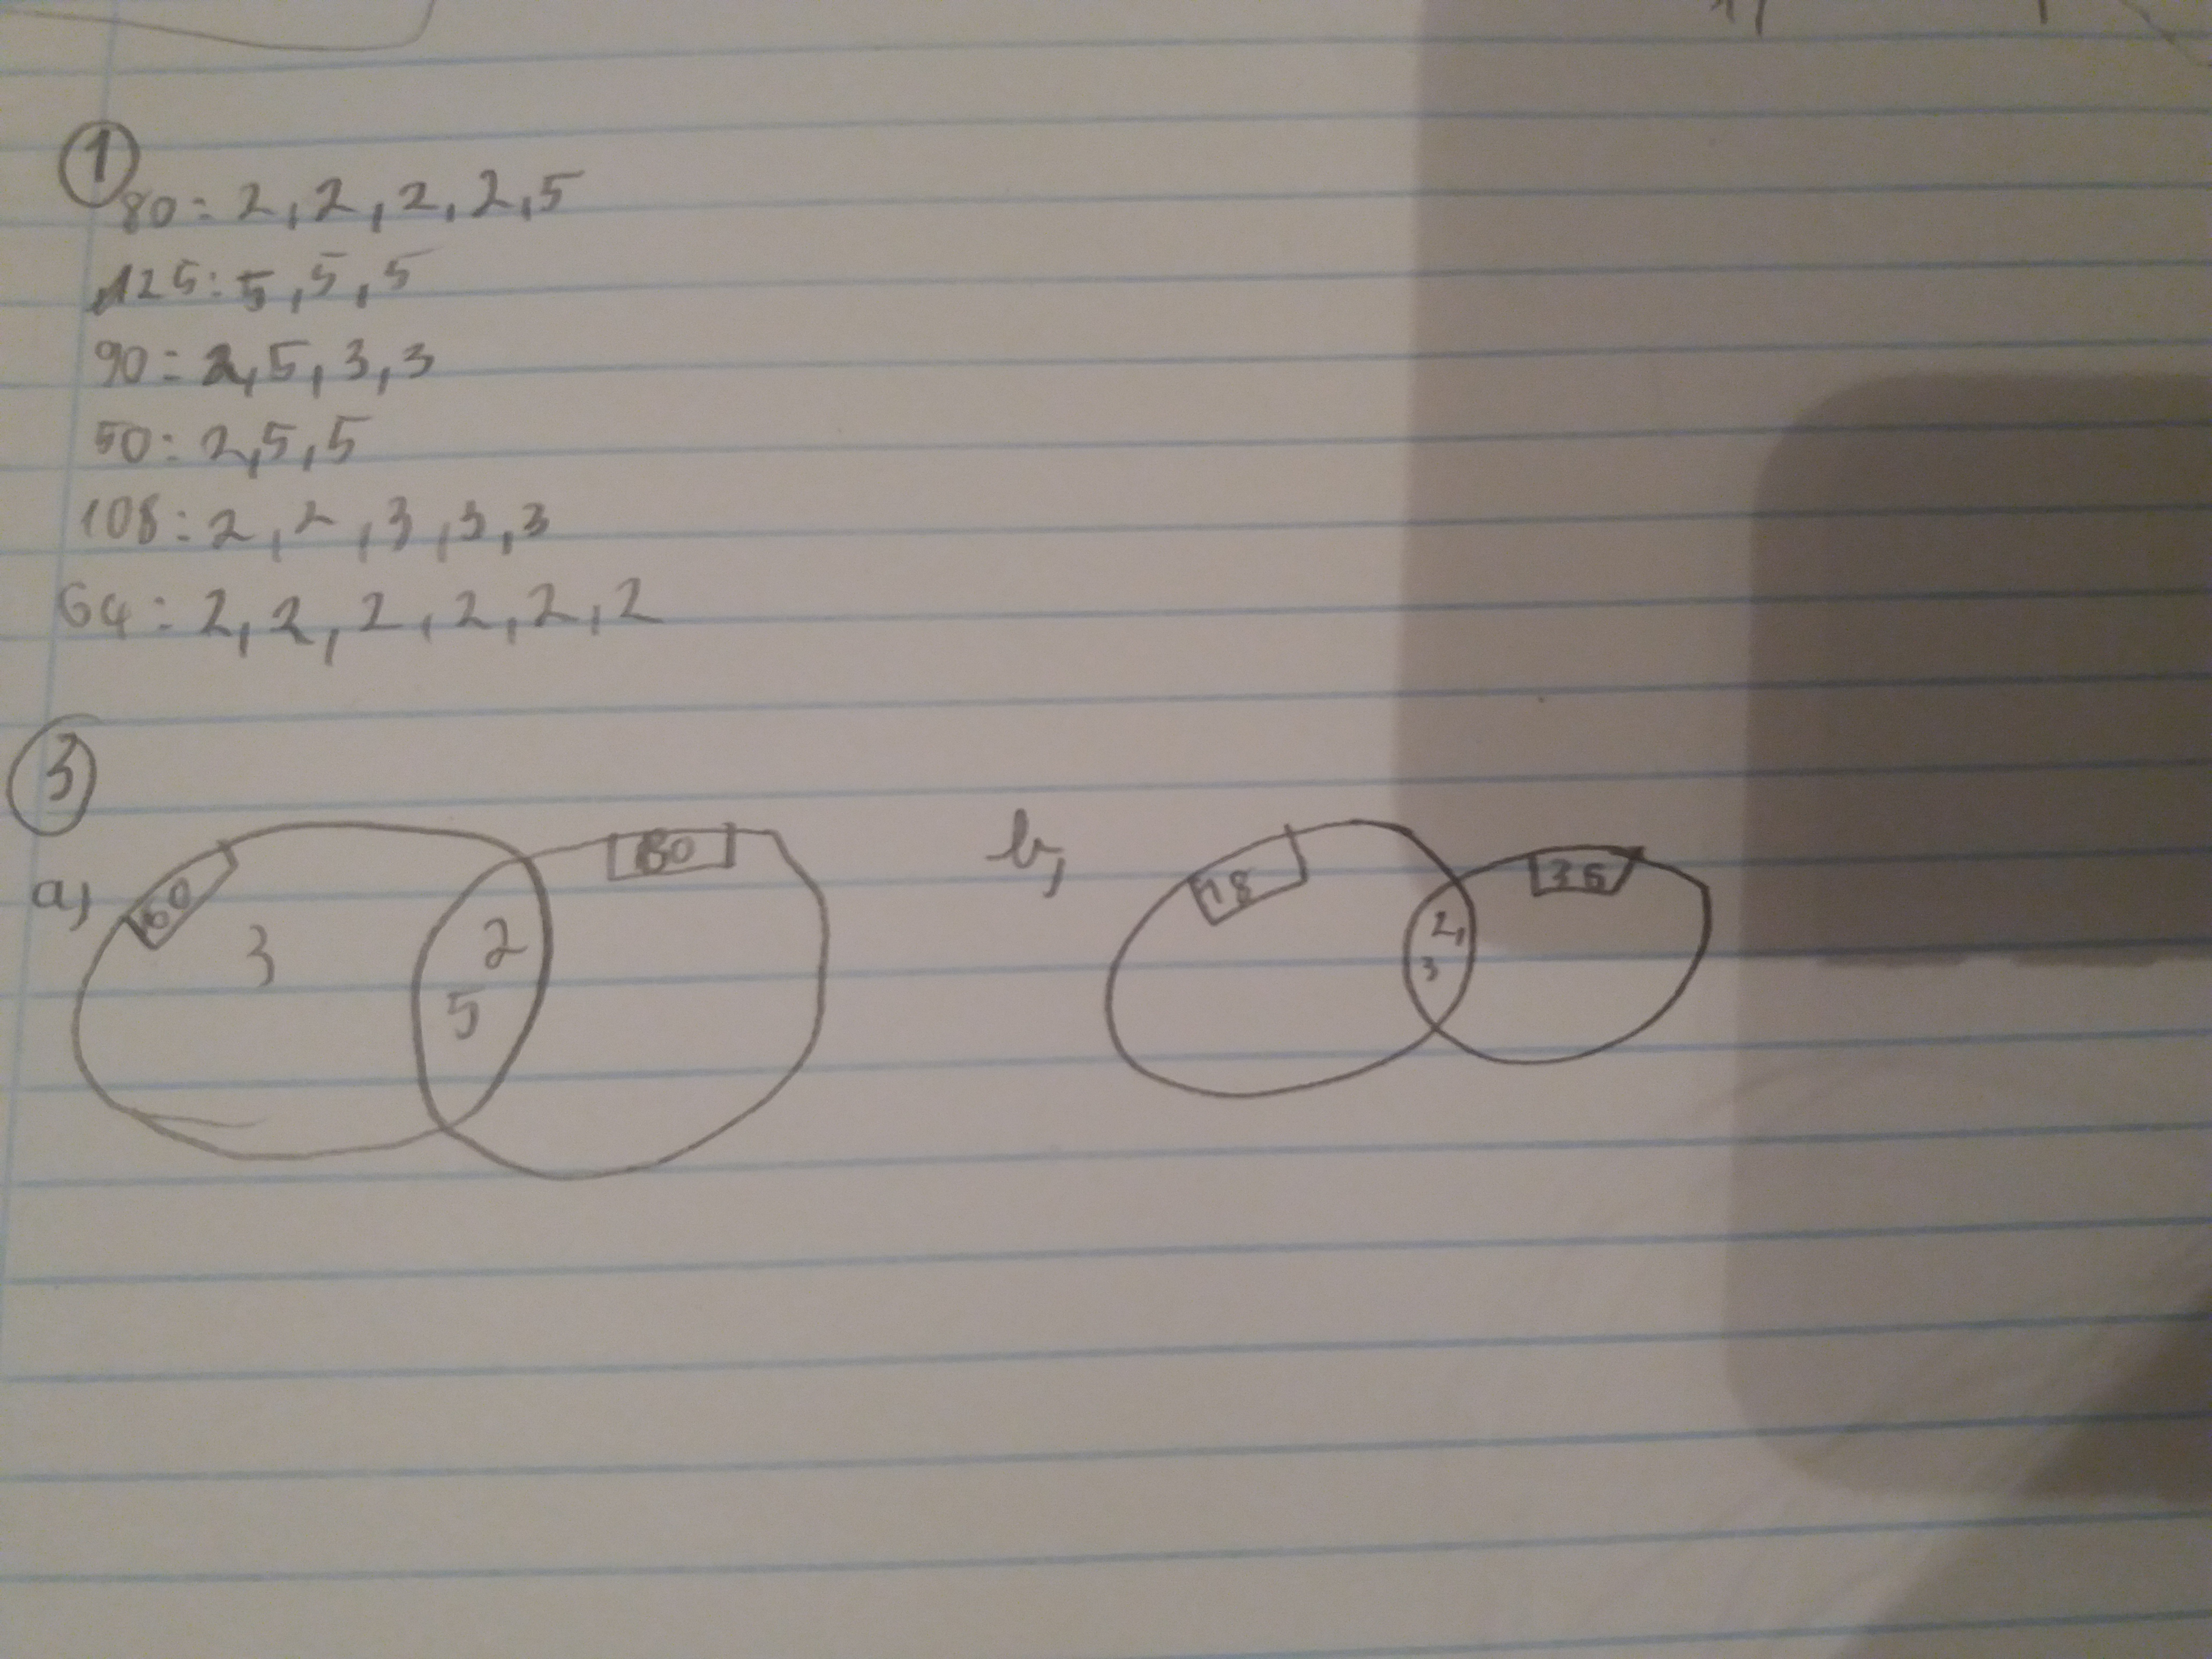 1
80: 2, 2, 2, 2, 5
125: 5, 5, 5
90: 2, 5, 3, 3
50: 2, 5, 5
108: 2, 2, 3, 3, 3
64: 2, 2, 2, 2, 2, 2
3
a) 60 80
3 2
5
b, 18 36
2,
3